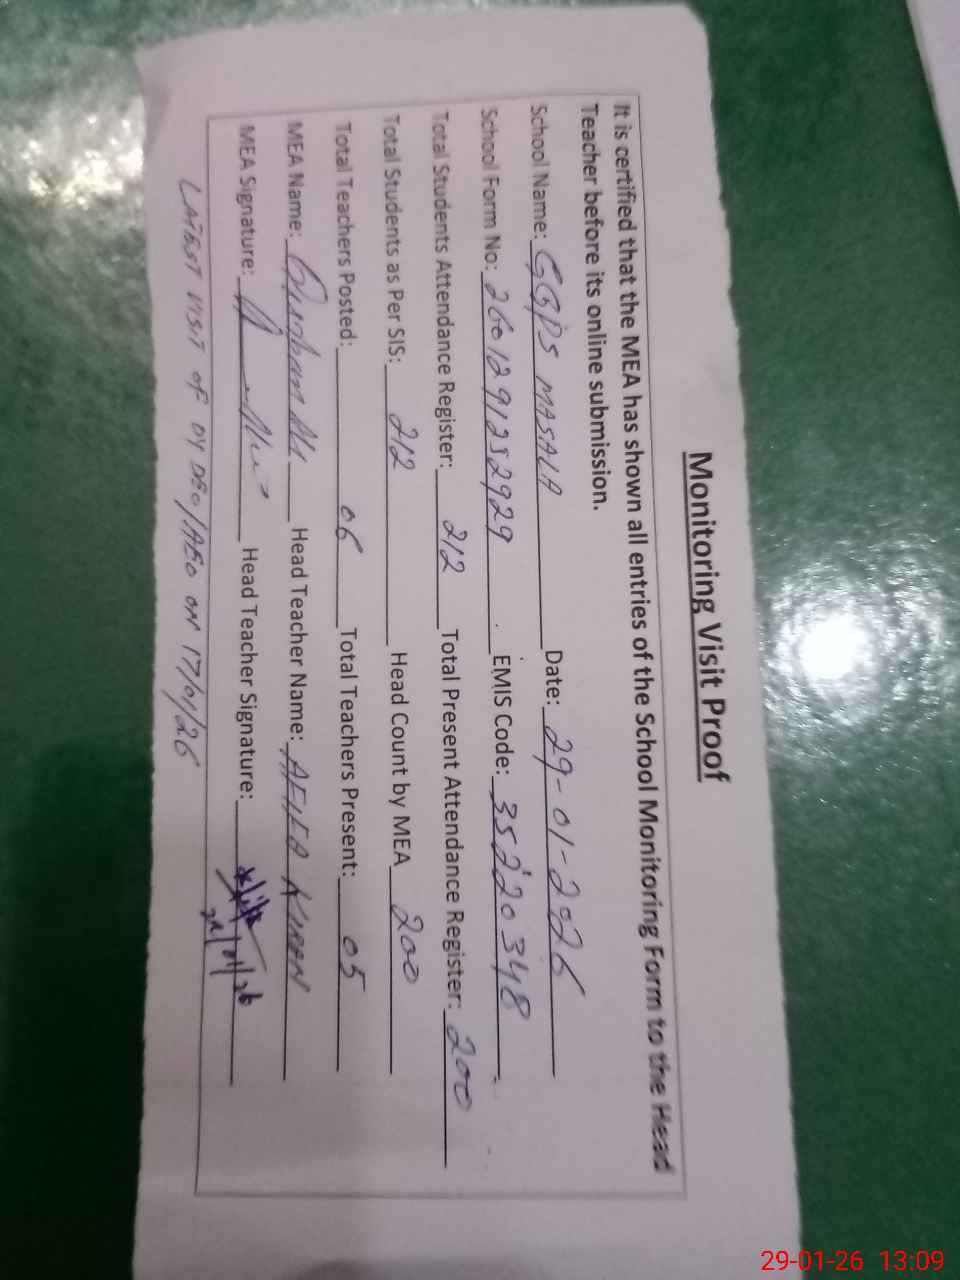 Monitoring Visit Proof
It is certified that the MEA has shown all entries of the School Monitoring Form to the Head
Teacher before its online submission.
School Name: GGPS MASALA Date: 29-01-2026
School Form No: 2601291252929 EMIS Code: 35220348
Total Students Attendance Register: 212 Total Present Attendance Register: 200
Total Students as Per SIS: 212 Head Count by MEA 200
Total Teachers Posted: 06 Total Teachers Present: 05
MEA Name: Qurban Ali Head Teacher Name: AFIFA KIRAN
MEA Signature: Head Teacher Signature:
LATEST VISIT OF DY DEO/AEO ON 17/01/26
29-01-26 13:09